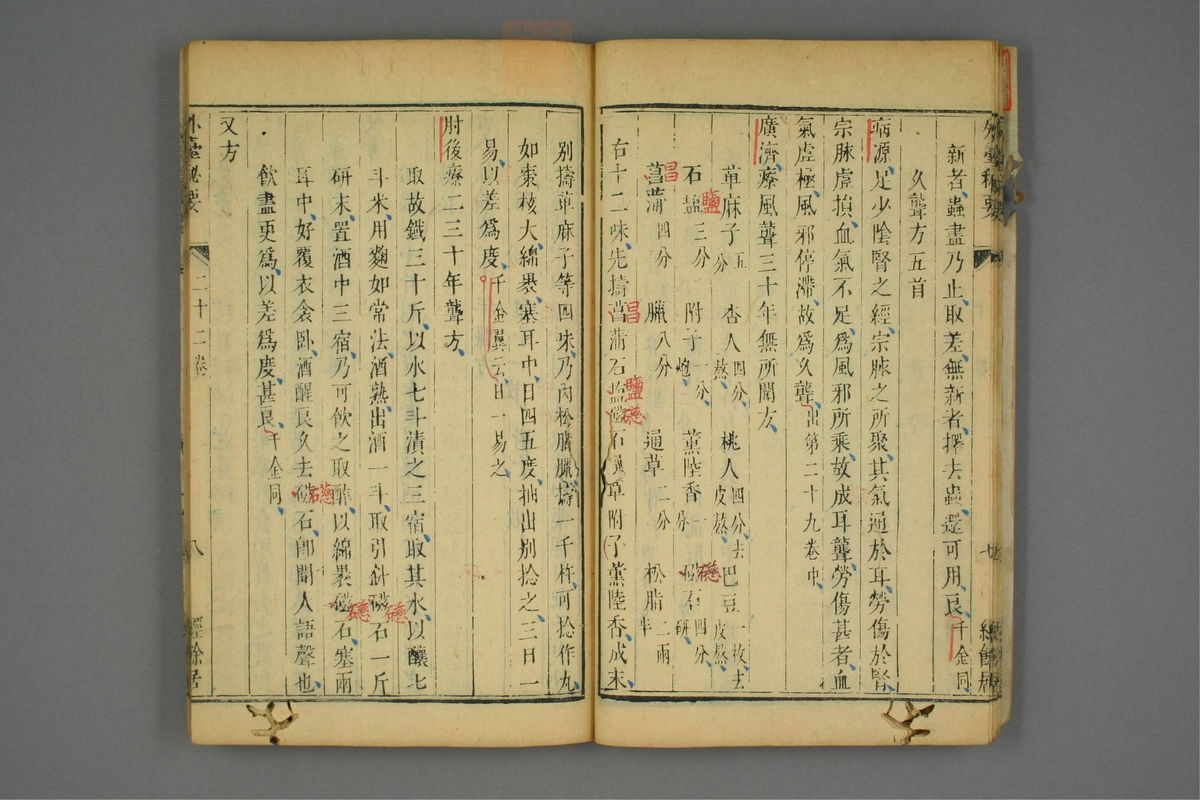 新者蟲盡乃止取差無新者擇去蟲還可用良千金同
久聾方五首
病源足少陰腎之經宗脉之所聚其氣通於耳勞傷於腎
宗脉虛損血氣不足爲風邪所乘故成耳聾勞傷甚者血
氣虛極風邪停滯故爲久聾出第二十九卷中
廣濟療風聾三十年無所聞方
萆麻子五分 杏人四分熬 桃人四分去皮熬 巴豆一枚去皮熬
石鹽三分 附子一分炮 薰陸香一分 磁石四分研
菖蒲四分 臘八分 通草二分 松脂二兩半
右十二味先擣菖蒲石鹽磁石通草附子薰陸香成末
別擣萆麻子等四味乃內松脂臘擣一千杵可捻作丸
如棗核大綿裹塞耳中日四五度抽出別捻之三日一
易以差爲度千金翼云日一易之
肘後療二三十年聾方
取故鐵三十斤以水七斗漬之三宿取其水以釀七
斗米用麴如常法酒熟出酒一斗取引針磁石一斤
研末置酒中三宿乃可飲之取醉以綿裹磁石塞兩
耳中好覆衣衾卧酒醒良久去磁石卽聞人語聲也
飲盡更爲以差爲度甚良千金同
又方
外臺秘要
二十二卷
八
經餘居